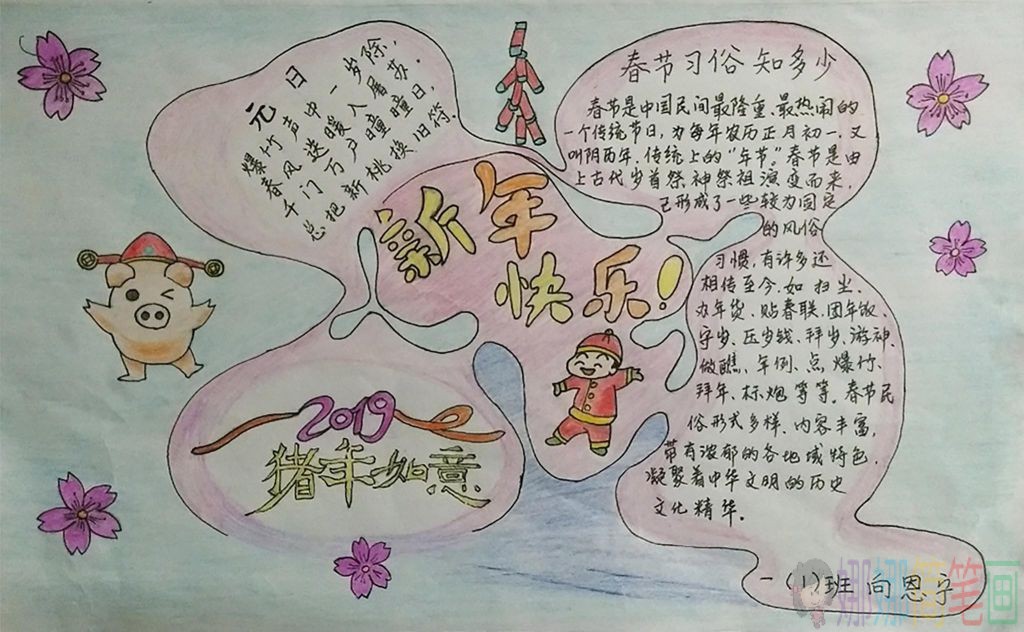 元日
爆竹声中一岁除，
春风送暖入屠苏。
千门万户曈曈日，
总把新桃换旧符。
新年
快乐！
2019
猪年如意
春节习俗知多少
春节是中国民间最隆重、最热闹的
一个传统节日，为每年农历正月初一，又
叫阴历年，传统上的“年节”。春节是由
上古代岁首祭神祭祖演变而来，
已形成了一些较为固定
的风俗
习惯，有许多还
相传至今，如扫尘、
办年货、贴春联、团年饭、
守岁、压岁钱、拜岁、游神、
做醮、年例、点爆竹、
拜年、标炮等等。春节民
俗形式多样、内容丰富，
带有浓郁的各地域特色，
凝聚着中华文明的历史
文化精华。
一(1)班 向恩宇
娜娜简笔画